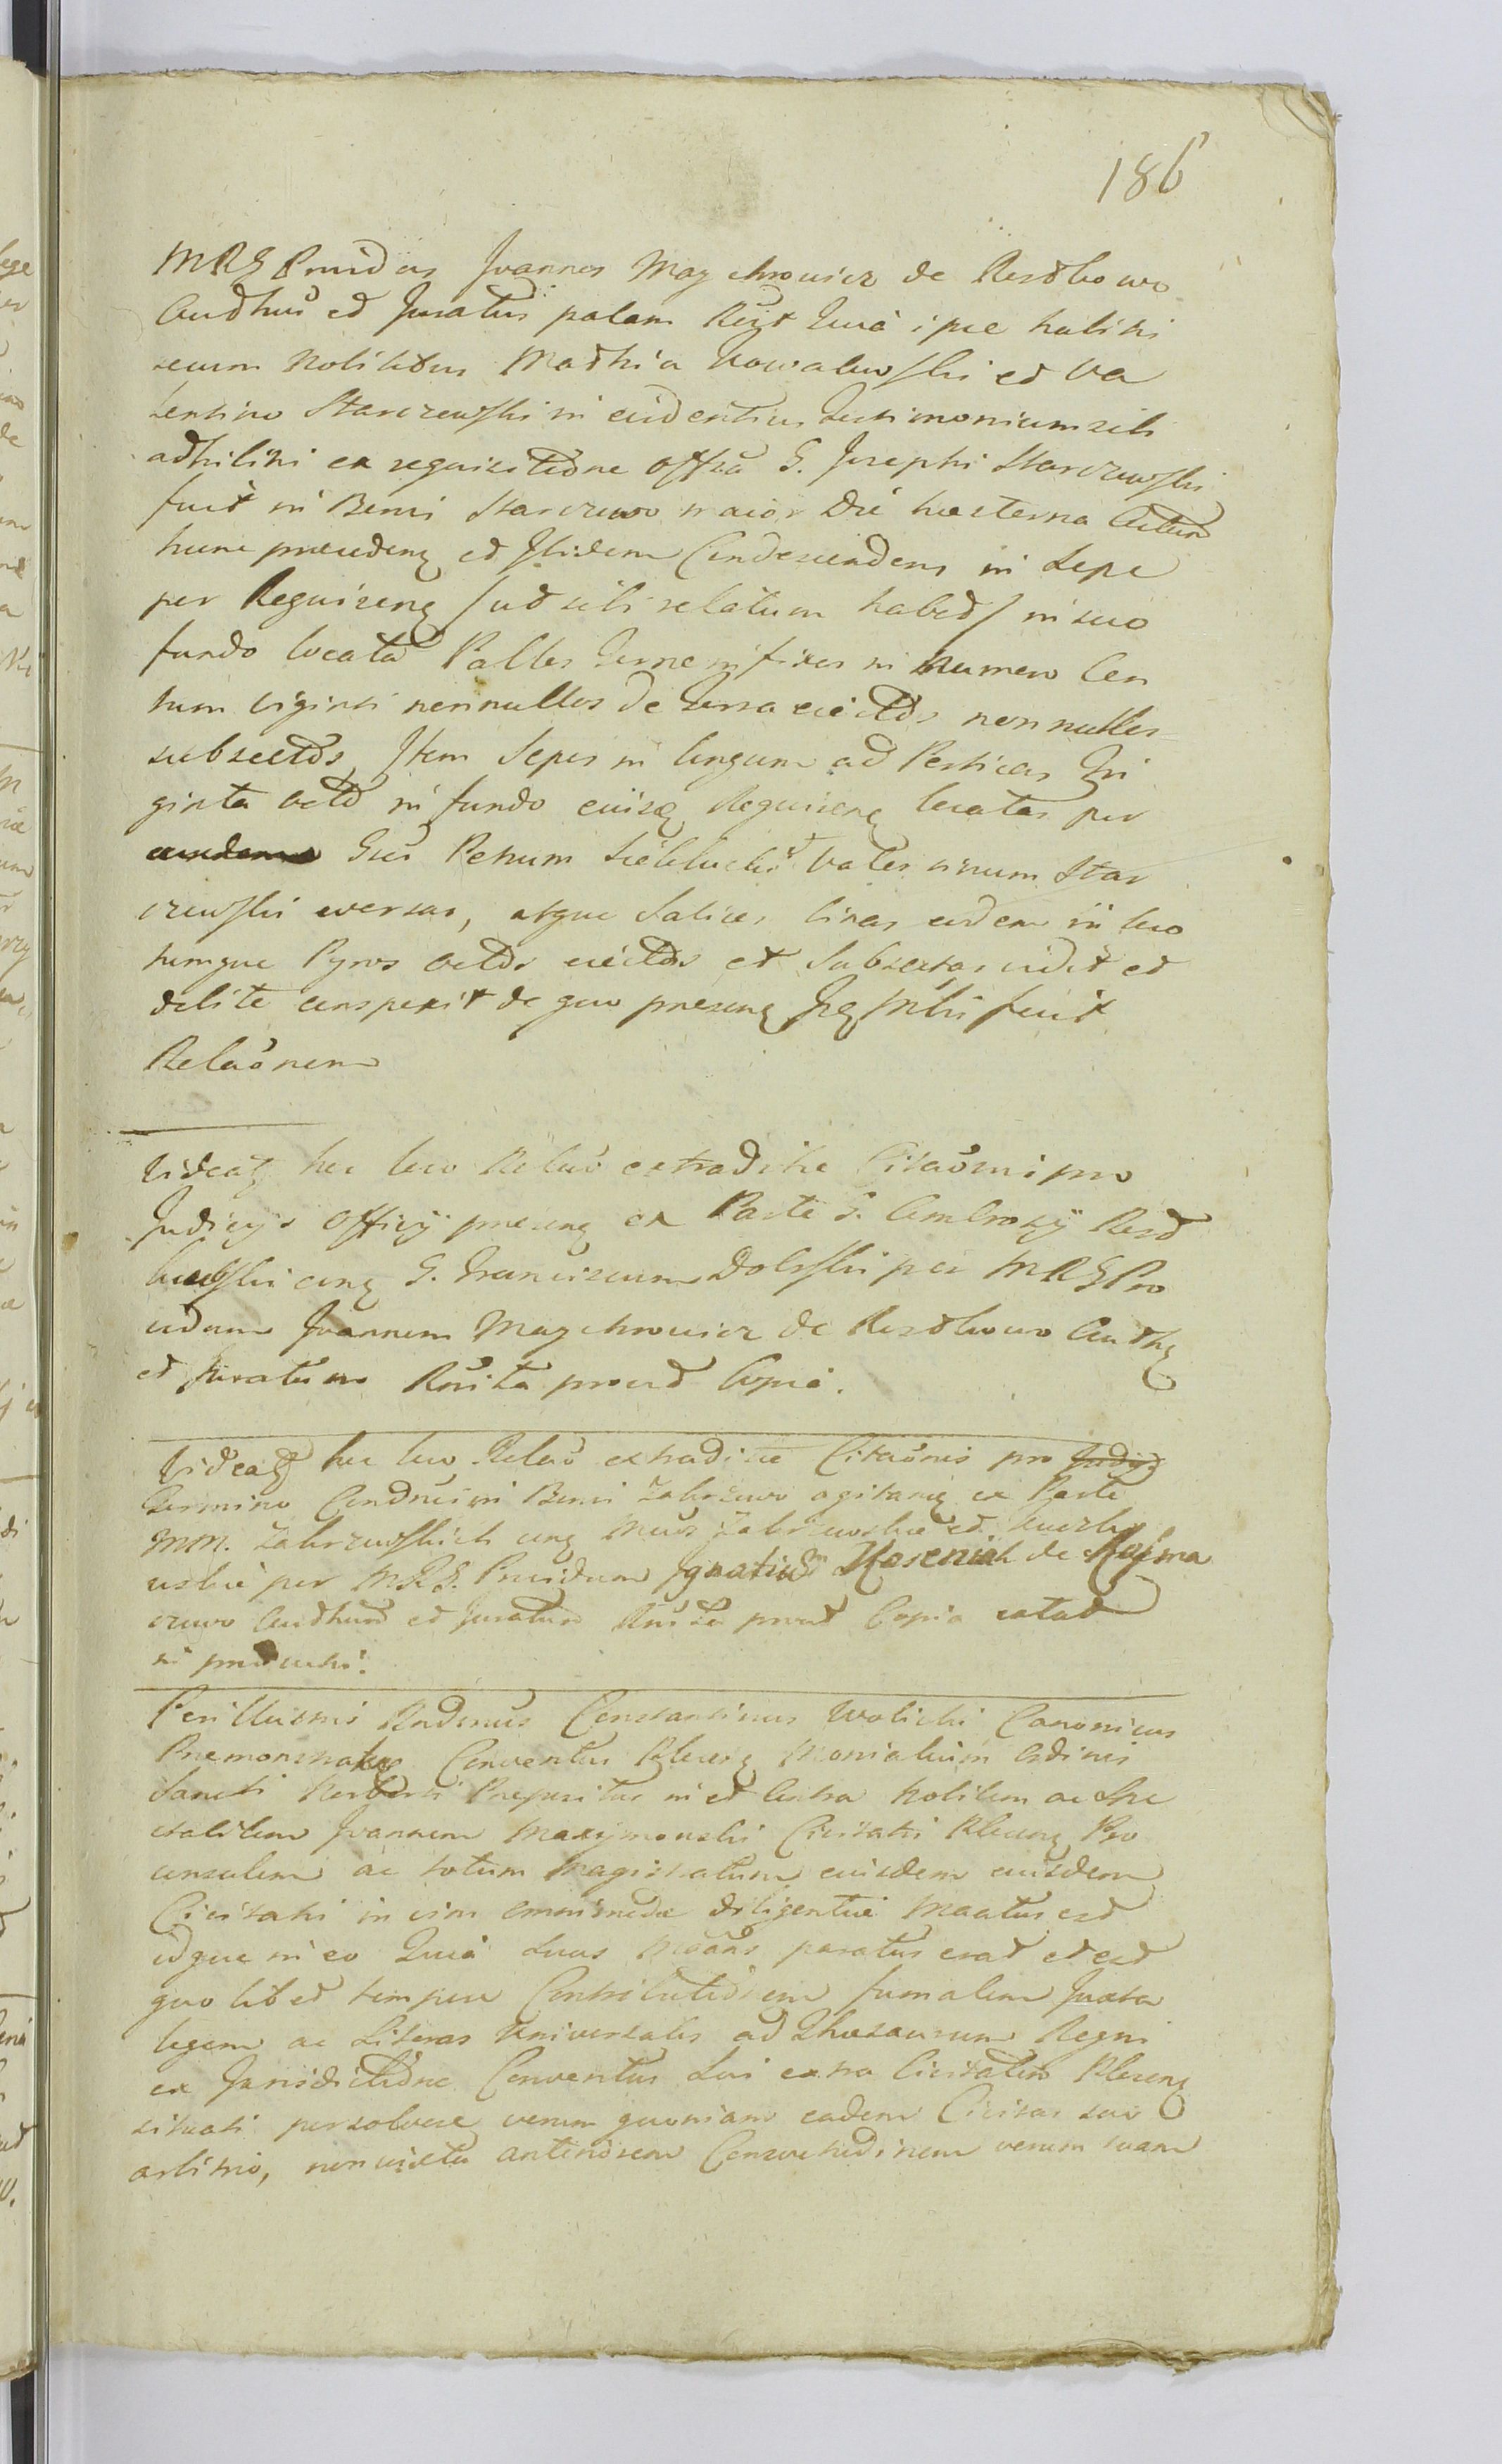 186
MRG Pruidus Joannes Maychrowicz de Resdbowo
Authus et Juratus palam Recgt Quia ipse habitis
secum Nobilibus Mathia Kowalewski et Va
lentino Starczewski in euidentius Testimonium sibi
adhibitis ex requisitione Offsa G. Josephi Starczewski
fuit in Bonis Starczewo maior Die hesterna Actum
hunc precedenę et Ibidem Condescendens in Sepe
per Requirenę /ut sibi relatum habet/ in suo
fundo locata Pallos Terrae infixos in Numero Cen
tum viginti nonnullos de Terra eiectos nonnullos
subsectos, Item Sepes in longum ad Perticas Tri
ginta octo in fundo eiusdę Requirenę locatas per
Gsos Petrum Valentinum Star
czewski eversas, atque Salices binas eidem in loco
tumque Pyros octo eiectos et Subsectas vidit et
debite conspexit de quo presenę Jrę Mhi fecit
Relaonem
Videatę hic loco Relao extraditae Citaonis pro
Judicys Officy presenę ex Parte G. Ambrosy Resd
bowski conę G. Franciscum Dolski per MRG Pro
uidum Joannem Maychrowicz de Resdbowo Authę
et Juratum Rnita prout Copia.
Videatę hic loco Relao extraditae Citaonis pro Judyę
Termino Condnsi in Bonis Zabrzewo agitanę ex Parte
MM. Zabrzewskich conę Mcos Zabrzewskie et
wskie per MRG. Pruidum Ignatium Koseniak de Kojma
czewo Authum et Juratum Rnita prout Copia estat
in
Perillusmis Rndsmus Constantinus Wolicki Canonicus
Premonstraten Conventus Plocenę Monialium Ordinis
Sancti Norberti Prepositus in et Contra Nobilem ac Spe
ctabilem Joannem Maxymowski Civitatis Plocenę Pro
consulem ac totum Magistratum eiusdem eiusdem
Civitatis in vim omnimodae diligentiae Maatus est
idque in eo Quia Suus Moans paratus erat et est
quo libet tempore Contributionem fumalem Juxta
legem ac Literas Universales ad Thesaurum Regni
ex Jurisdictione Conventus Sui extra Civitatem Plocenę
situati persolvere verum quoniam eadem Civitas suo
arbitrio, non iuxta anteriorem Consuetudinem verum suam